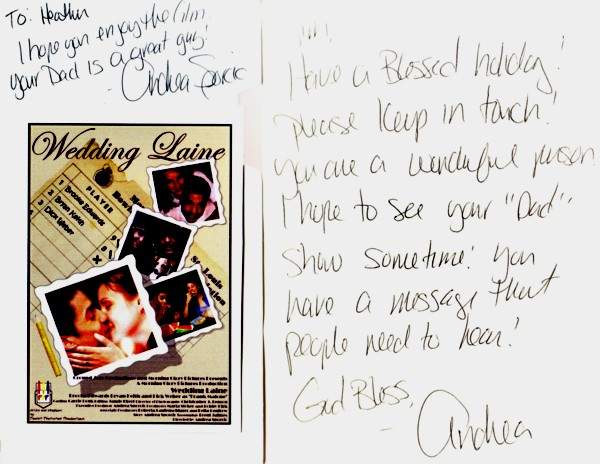 To: Heather
I hope you enjoy the film
your Dad is a great guy!
- Andrea
Wedding Laine
PLAYER
1 Brooke Edwards
2 Bryan Keith
3 Dick Weber
St. Louis
Wedding Laine
Have a Blessed holiday!
please keep in touch!
you are a wonderful person
I hope to see your "Dad"
show sometime! you
have a message that
people need to hear!
God Bless,
- Andrea